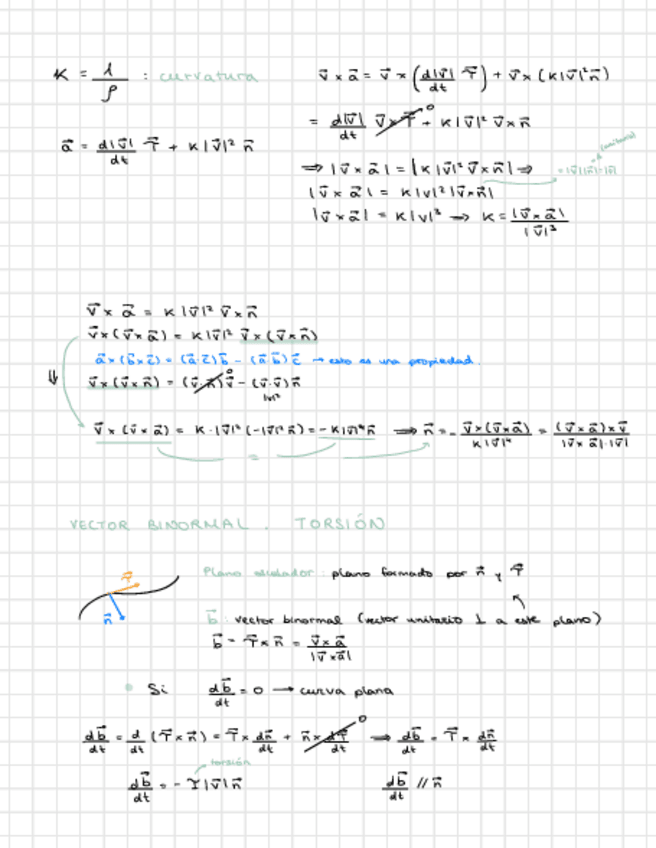 K = 1/ρ : curvatura
a⃗ = d|v⃗|/dt T⃗ + K|v⃗|² n⃗
v⃗ × a⃗ = v⃗ × (d|v⃗|/dt T⃗) + v⃗ × (K|v⃗|² n⃗)
= d|v⃗|/dt v⃗ × T⃗ + K|v⃗|² v⃗ × n⃗
0
⇒ |v⃗ × a⃗| = |K|v⃗|² v⃗ × n⃗| ⇒
(unitario)
|v⃗ × a⃗| = K|v|² |v⃗ × n⃗|
|v⃗ × a⃗| = K|v|³ → K = |v⃗ × a⃗|/|v⃗|³
v⃗ × a⃗ = K|v⃗|² v⃗ × n⃗
v⃗ × (v⃗ × a⃗) = K|v⃗|² v⃗ × (v⃗ × n⃗)
a⃗ × (b⃗ × c⃗) = (a⃗·c⃗)b⃗ - (a⃗·b⃗)c⃗ → esto es una propiedad.
⇓ v⃗ × (v⃗ × n⃗) = (v⃗·n⃗)v⃗ - (v⃗·v⃗)n⃗
0
|v|²
v⃗ × (v⃗ × a⃗) = K·|v⃗|² (-|v⃗|² n⃗) = -K|v⃗|⁴ n⃗ ⇒ n⃗ = - v⃗ × (v⃗ × a⃗)/K|v⃗|⁴ = (v⃗ × a⃗) × v⃗/|v⃗ × a⃗|·|v⃗|
=
VECTOR BINORMAL . TORSIÓN
Plano osculador : plano formado por n⃗ y T⃗
T⃗
n⃗
b⃗ : vector binormal (vector unitario ⊥ a este plano)
b⃗ = T⃗ × n⃗ = v⃗ × a⃗/|v⃗ × a⃗|
• Si db⃗/dt = 0 → curva plana
db⃗/dt = d/dt (T⃗ × n⃗) = T⃗ × dn⃗/dt + n⃗ × dT⃗/dt ⇒ db⃗/dt = T⃗ × dn⃗/dt
0
torsión
db⃗/dt = - τ|v⃗| n⃗
db⃗/dt // n⃗